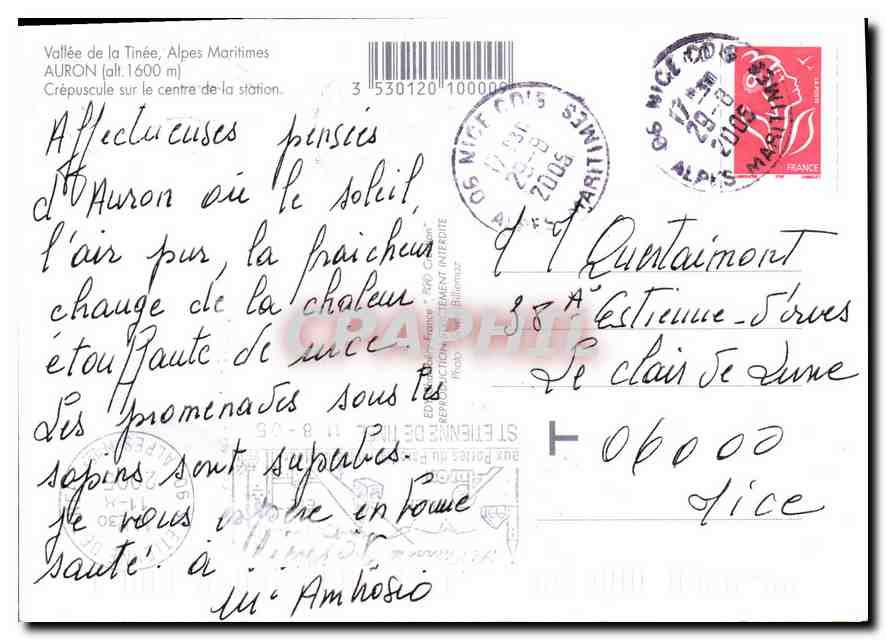 Vallée de la Tinée, Alpes Maritimes
AURON (alt.1600 m)
Crépuscule sur le centre de la station.
3 530120 100009
06 NICE CDIS ALPES MARITIMES
17 H30
29-8
2005
06 NICE CDIS ALPES MARITIMES
17 H30
29-8
2005
LA POSTE
FRANCE
Affectueuses pensées
d'Auron où le soleil
l'air pur, la fraicheur
change de la chaleur
étouffante de nice.
Les promenades sous les
sapins sont superbes.
je vous espère en bonne
santé. à
Ambrosio
REPRODUCTION STRICTEMENT INTERDITE
Photo Billiemaz
CPAPHIL
Questaimont
38 A Estienne-d'orves
Le clair de Lune
T
06000
Nice
ST ETIENNE DE TINEE 11 8-05